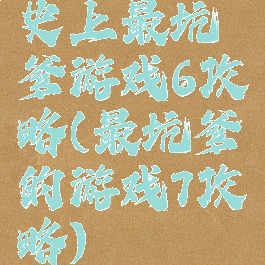 史上最坑
爹游戏6攻
略(最坑爹
的游戏7攻
略)